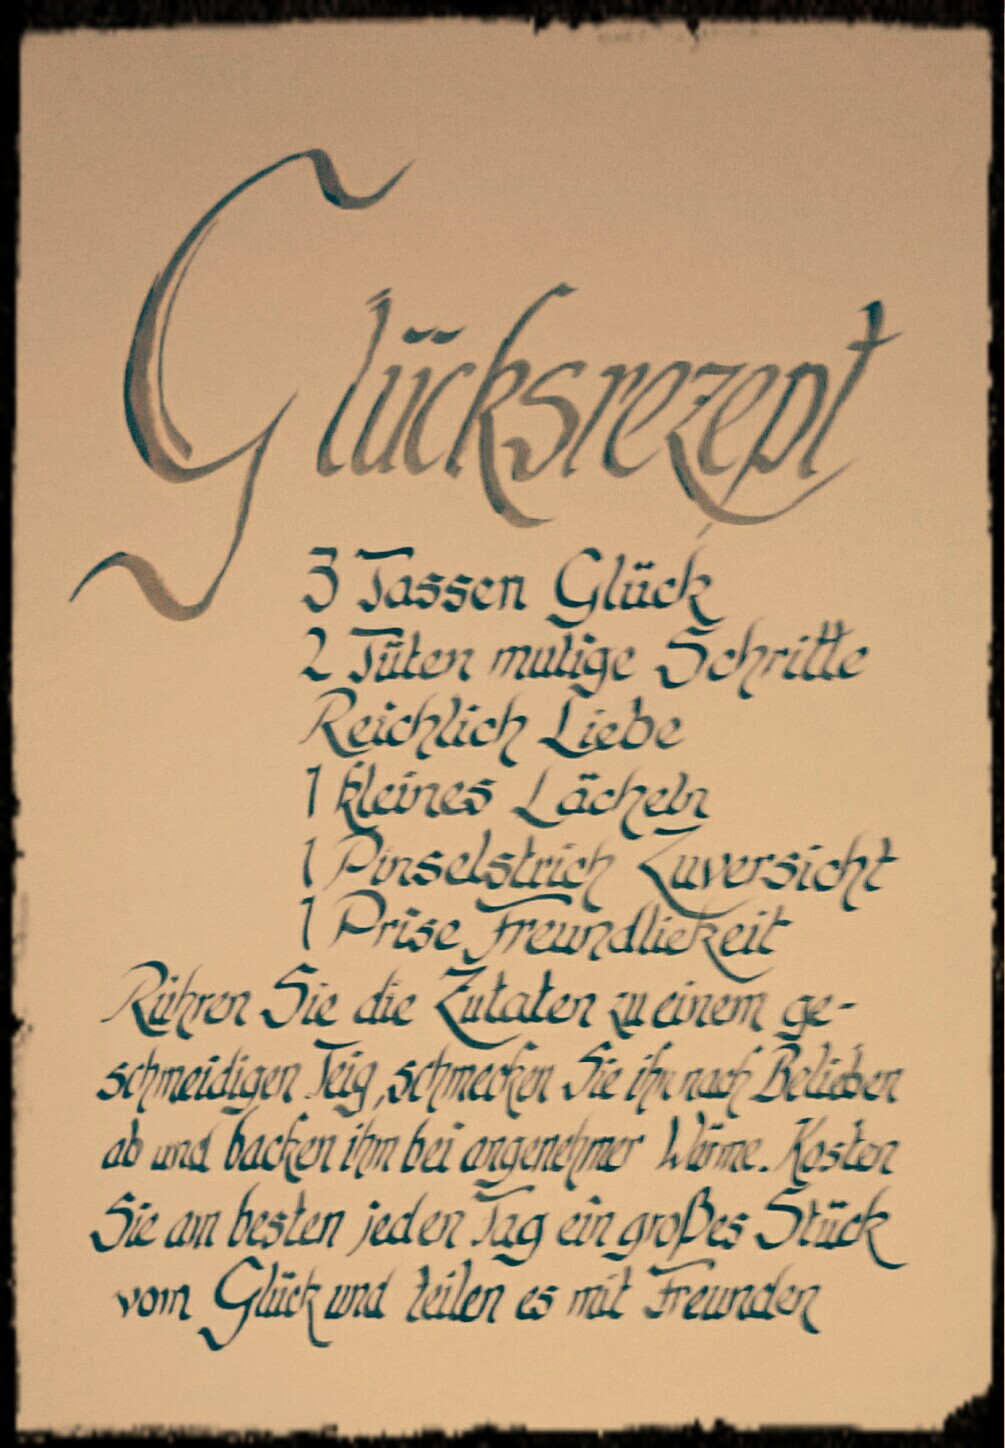 Glücksrezept
3 Tassen Glück
2 Tüten mutige Schritte
Reichlich Liebe
1 kleines Lächeln
1 Pinselstrich Zuversicht
1 Prise Freundliekeit
Rühren Sie die Zutaten zu einem ge-
schmeidigen Teig, schmecken Sie ihn nach Belieben
ab und backen ihm bei angenehmer Wärme. Kosten
Sie am besten jeden Tag ein großes Stück
vom Glück und teilen es mit Freunden